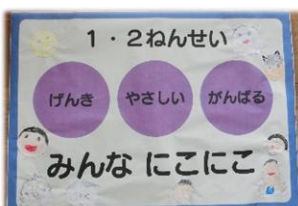 1・2ねんせい
げんき やさしい がんばる
みんな にこにこ